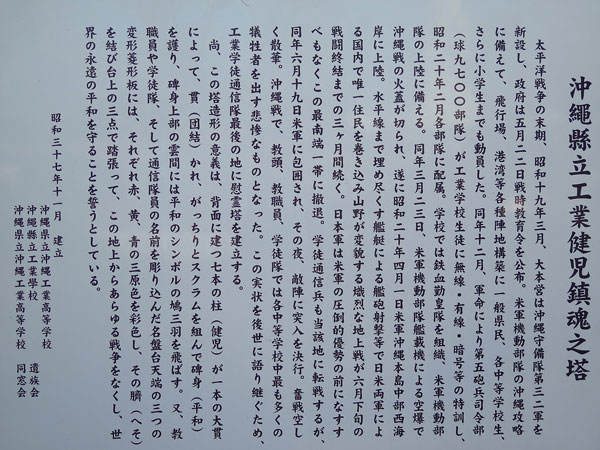 沖縄縣立工業健児鎮魂之塔
太平洋戦争の末期、昭和十九年三月、大本営は沖縄守備隊第三二軍を
新設し、政府は五月二二日戦時教育令を公布。米軍機動部隊の沖縄攻略
に備えて、飛行場、港湾等各種陣地構築に一般県民、各中等学校生、
さらに小学生までも動員した。同年十二月、軍命により第五砲兵司令部
(球九七〇〇部隊)が工業学校生徒に無線・有線・暗号等の特訓し、
昭和二十年二月各部隊に配属。学校では鉄血勤皇隊を組織、米軍機動部
隊の上陸に備える。同年三月二三日、米軍機動部隊艦載機による空爆で
沖縄戦の火蓋が切られ、遂に昭和二十年四月一日米軍沖縄本島中部西海
岸に上陸。水平線まで埋め尽くす艦艇による艦砲射撃等で日米両軍によ
る国内で唯一住民を巻き込み山野が変貌する熾烈な地上戦が六月下旬の
戦闘終結までの三ヶ月間続く。日本軍は米軍の圧倒的優勢の前になすす
べもなくこの最南端一帯に撤退。学徒通信兵も当該地に転戦するが、
同年六月十九日米軍に包囲され、その夜、敵陣に突入を決行。奮戦空し
く散華。沖縄戦で、教頭、教職員、学徒隊では各中等学校中最も多くの
犠牲者を出す悲惨なものとなった。この実状を後世に語り継ぐため、
工業学徒通信隊最後の地に慰霊塔を建立する。
尚、この塔造形の意義は、背面に建つ七本の柱(健児)が一本の大貫
によって、貫(団結)かれ、がっちりとスクラムを組んで碑身(平和)
を護り、碑身上部の雲間には平和のシンボルの鳩三羽を飛ばす。又、教
職員や学徒隊、そして通信隊員の名前を彫り込んだ名盤台天端の三つの
変形菱形板には、それぞれ赤、黄、青の三原色を彩色し、その臍(へそ)
を結び台上の三点で踏張って、この地上からあらゆる戦争をなくし、世
界の永遠の平和を守ることを誓うとしている。
昭和三十七年十一月 建立
沖縄県立沖縄工業高等学校
沖縄縣立工業学校 遺族会
沖縄県立沖縄工業高等学校 同窓会